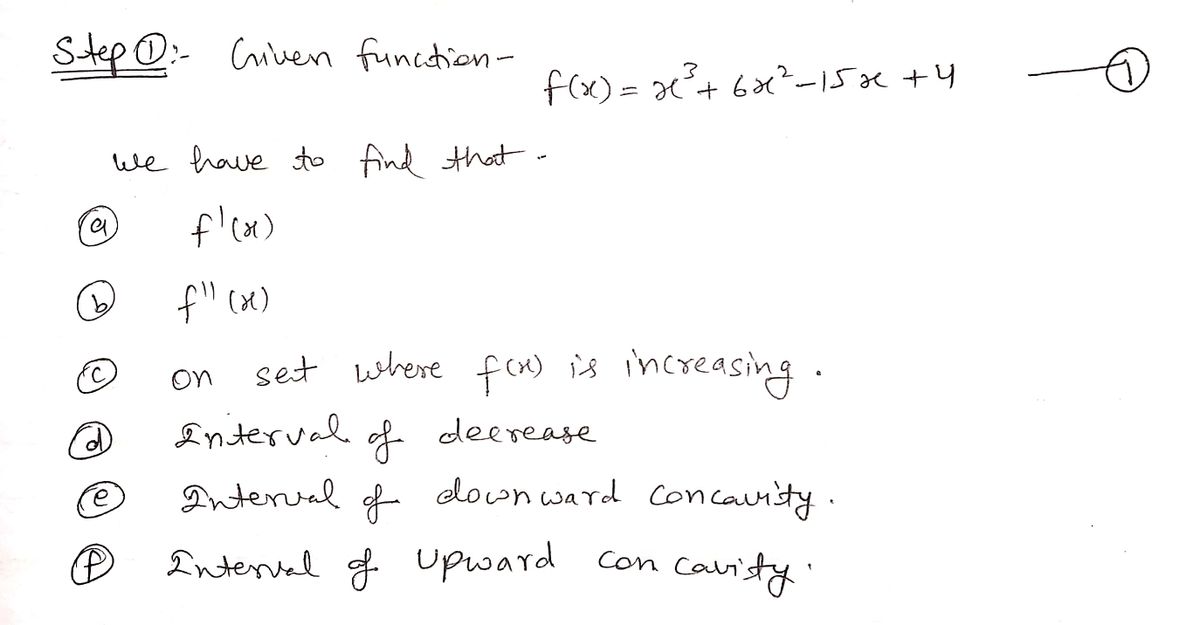 Step ①:- Given function-
f(x) = x³ + 6x² - 15x + 4 — ①
we have to find that -
ⓐ f'(x)
ⓑ f''(x)
ⓒ on set where f(x) is increasing.
ⓓ Interval of decrease
ⓔ Interval of downward concavity.
ⓕ Interval of upward concavity.